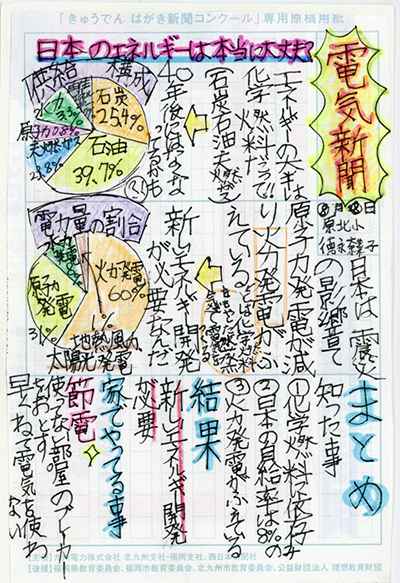 「きゅうでん はがき新聞コンクール」専用原稿用紙
日本のエネルギーは本当に大丈夫?
電気新聞
8月18日
原北小
エネルギーの大半は
化学燃料だって!!
(石炭石油天然ガス)
40年後には
なくなっ
てるかも
供給構成
石炭
25.4%
石油
39.7%
天然ガス
原子力0.8%
水力
日本は震災
の影響で
原子力発電が減
り火力発電がふ
えている
新しいエネルギー開発
が必要なんだ
電力量の割合
火力発電
60%
原子力
発電
31%
水力発電
1%
地熱風力
太陽光発電
まとめ
知った事
①化学燃料に依存
②日本の自給率は8%
③火力発電がふえている
結果
新しいエネルギー開発
が必要
家でやってる事
節電
使わない部屋のブレーカー
をおとす
早くねて電気を使わ
ない
【主催】九州電力株式会社 北九州支社・福岡支社、西日本新聞社
【後援】福岡県教育委員会、福岡市教育委員会、北九州市教育委員会、公益財団法人 理想教育財団